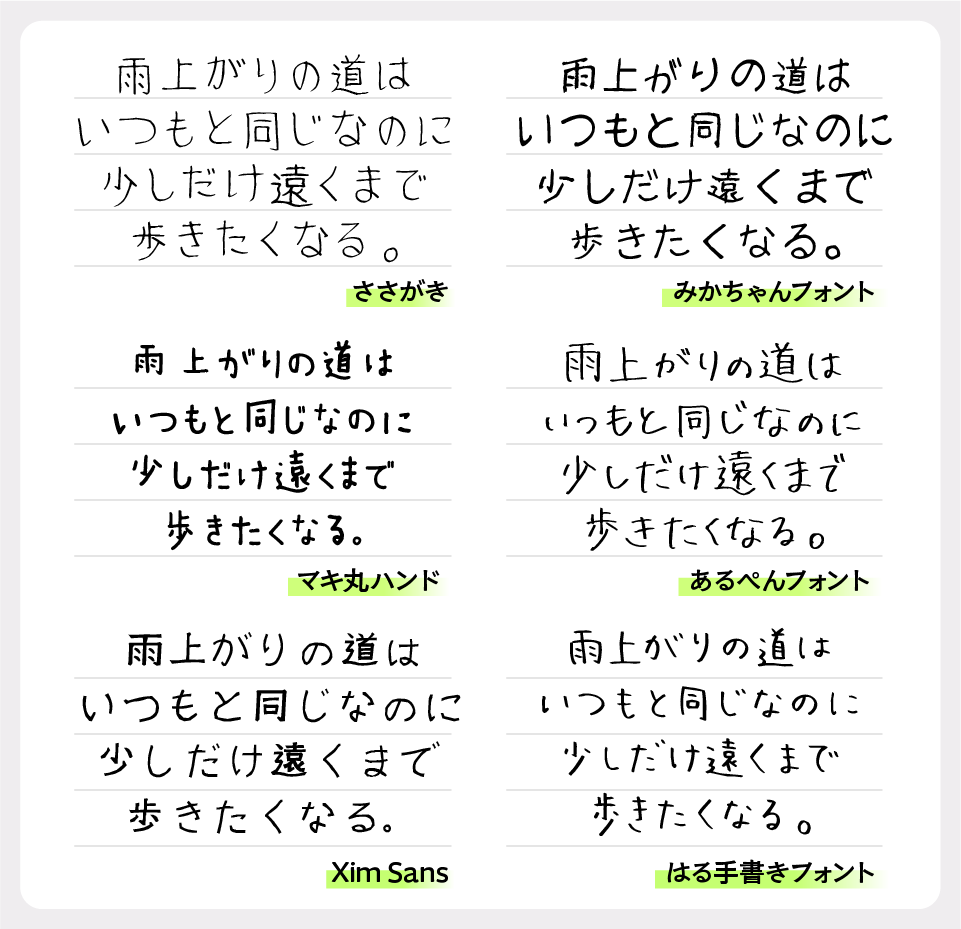 雨上がりの道は
いつもと同じなのに
少しだけ遠くまで
歩きたくなる。
ささがき
雨上がりの道は
いつもと同じなのに
少しだけ遠くまで
歩きたくなる。
みかちゃんフォント
雨上がりの道は
いつもと同じなのに
少しだけ遠くまで
歩きたくなる。
マキ丸ハンド
雨上がりの道は
いつもと同じなのに
少しだけ遠くまで
歩きたくなる。
あるぺんフォント
雨上がりの道は
いつもと同じなのに
少しだけ遠くまで
歩きたくなる。
Xim Sans
雨上がりの道は
いつもと同じなのに
少しだけ遠くまで
歩きたくなる。
はる手書きフォント